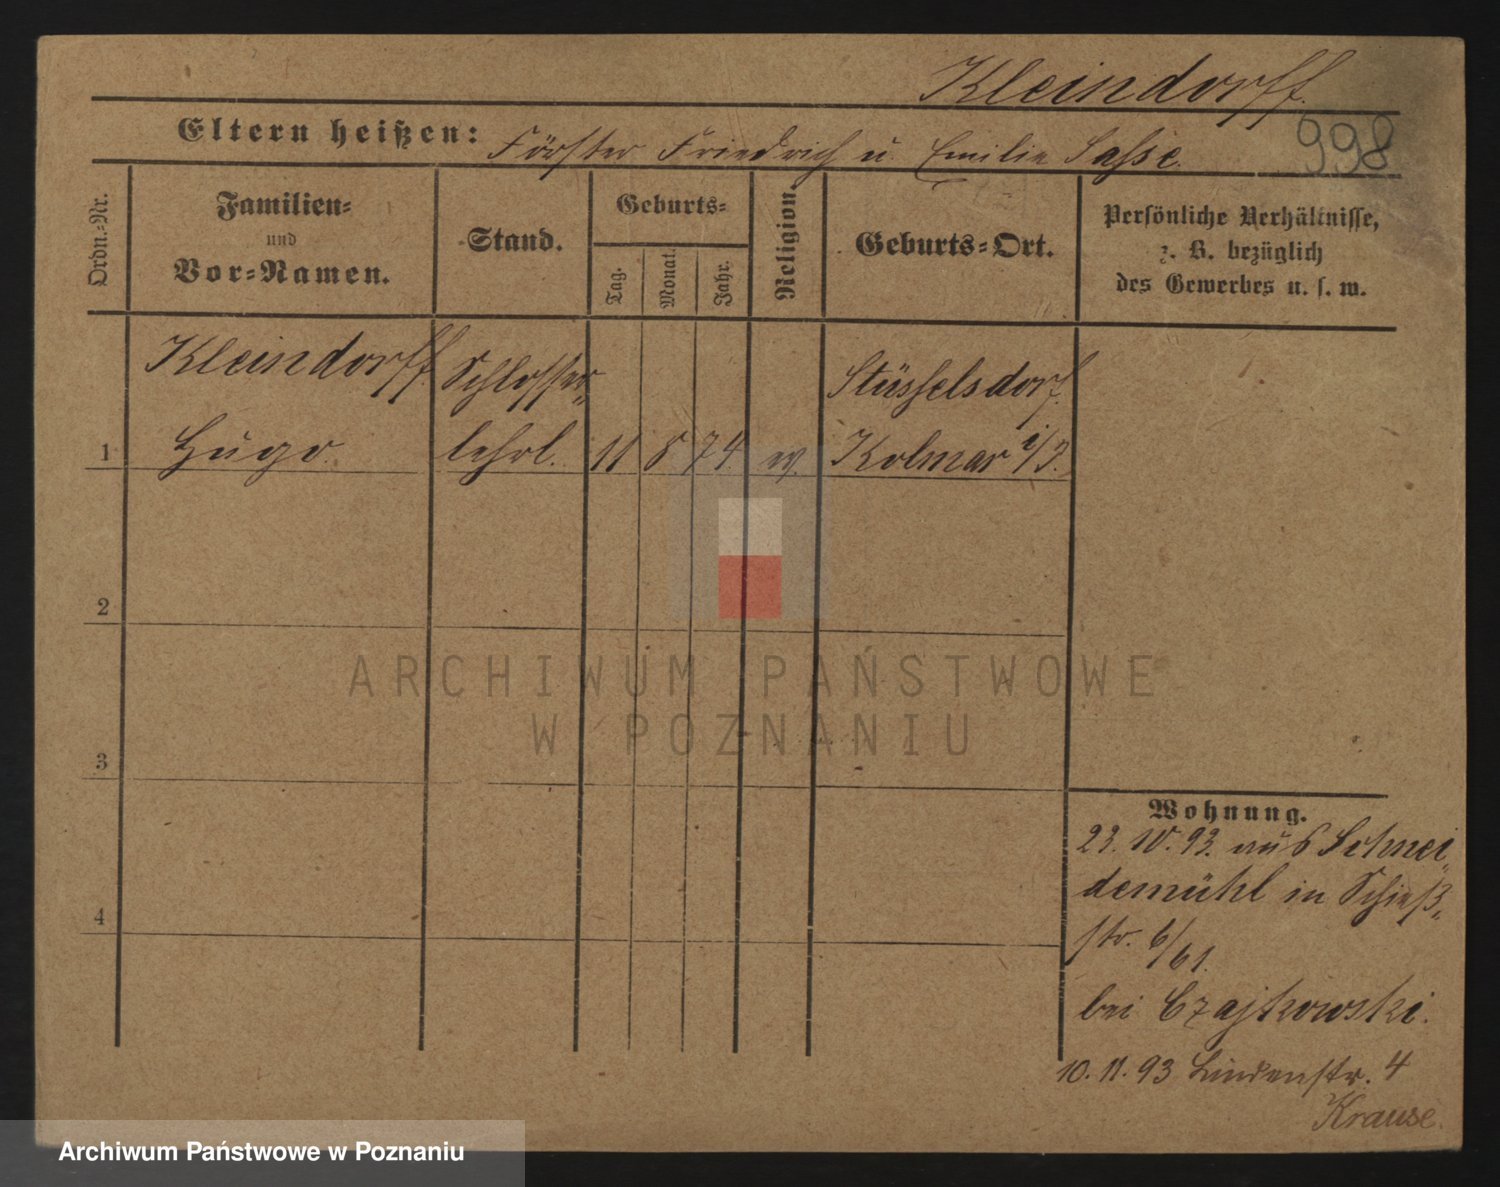 Kleindorff.
998
Eltern heißen: Förster Friedrich u. Emilie Sasse.
Ordn.-Nr.
Familien- und Vor-Namen.
Stand.
Geburts-
Tag.
Monat.
Jahr.
Religion.
Geburts-Ort.
Persönliche Verhältnisse,
z. B. bezüglich
des Gewerbes u. s. w.
Kleindorff Schlosser- Stüsselsdorf.
1 Hugo lehrl. 11 8 74. ev. Kolmar i/P.
2
3
4
Wohnung.
23. 10. 93. aus Schnei-
demühl in Schieß-
str. 6/61.
bei Czajkowski.
10. 11. 93 Lindenstr. 4
Krause.
ARCHIWUM PAŃSTWOWE
W POZNANIU
Archiwum Państwowe w Poznaniu